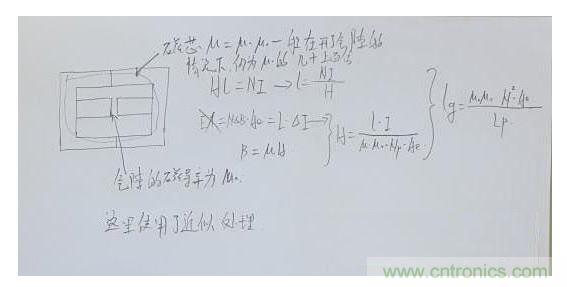 磁芯 μ = μr·μ0 一般在开气隙的
情况下,仍为μ0的几十上百倍
Hl = NI → l = NI/H
= NΔB·Ae = L·ΔI →
H = L·I/(μr·μ0·Np·Ae)
lg = μrμ0 N²·Ae/Lp
B = μH
气隙的磁导率为 μ0
这里使用了近似处理
www.cntronics.com